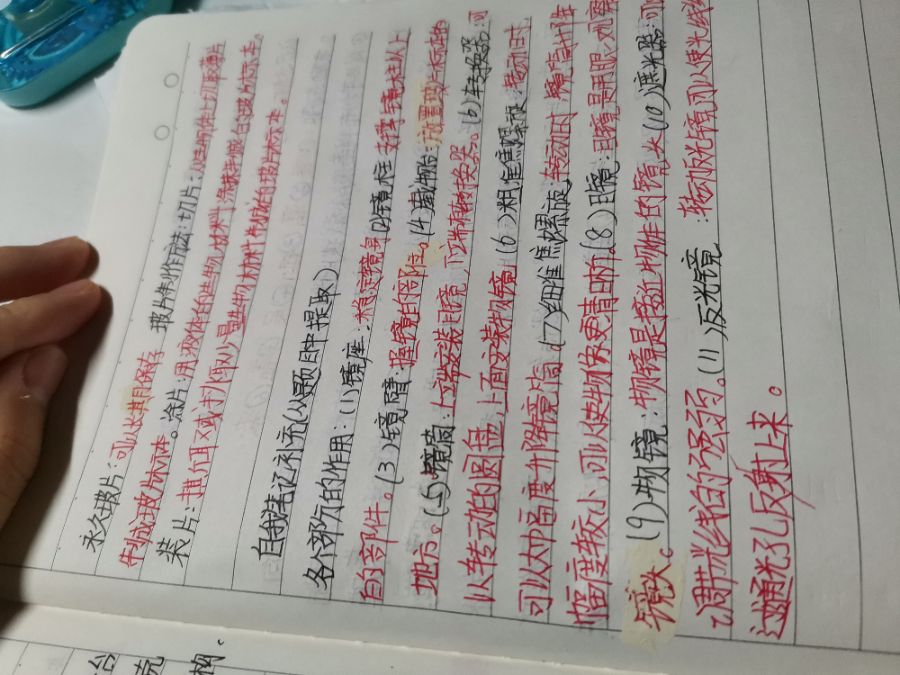 永久玻片：可以长期保存 玻片制作方法：切片：从生物体上切取薄片
制成玻片标本。涂片：用液体的生物材料涂抹制成的玻片标本。
装片：挑取或撕取少量生物材料制成的玻片标本。
自我笔记补充(从题目中提取)
各个部分的作用：(1)镜座：稳定镜身 (2)镜柱 支撑镜柱以上
的部件。(3)镜臂：握镜的部位。(4)载物台：放置玻片标本的
地方。(5)镜筒：上端安装目镜，下端有转换器。(6)转换器：可
以转动的圆盘，上面安装物镜 (6)粗准焦螺旋：转动时，
可以大幅度升降镜筒 (7)细准焦螺旋：转动时，镜筒升降
幅度较小，可以使物像更清晰。(8)目镜：目镜是用眼观察
镜头。(9)物镜：物镜是接近物体的镜头 (10)遮光器：可
调节光线的强弱。(11)反光镜：转动反光镜可以使光线经
过通光孔反射上来。
台
构。